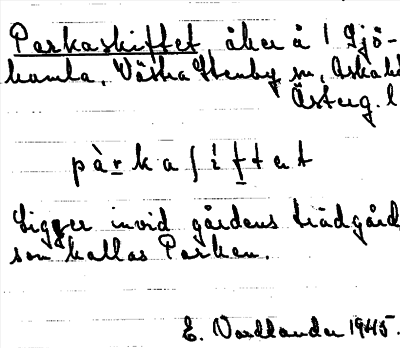 Parkaskiftet, åker å 1 Gjö-
kamla, Västra Stenby sn, Aska hd
Österg. l
pàr̲kaʃif̲tet
Ligger invid gårdens trädgård
som kallas Parken.
E. Vadlander 1945.